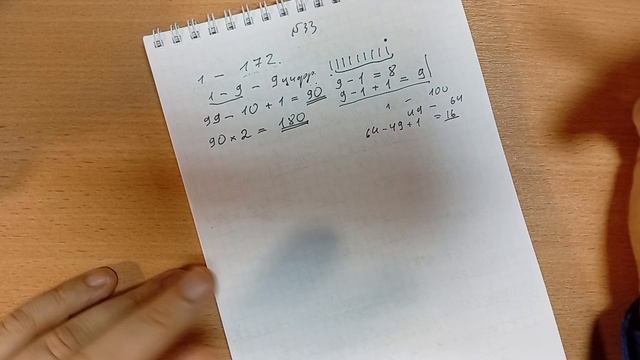 N33
1 - 172.
1 - 9 - 9 цифр
99 - 10 + 1 = 90
90 × 2 = 180
9 - 1 = 8
9 - 1 + 1 = 9
1 - 100
49 - 64
64 - 49 + 1 = 16